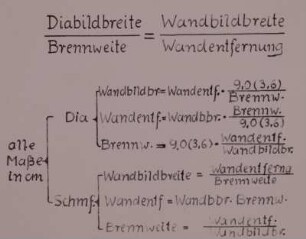 Diabildbreite / Brennweite = Wandbildbreite / Wandentfernung
alle Maße in cm
Dia
Wandbildbr = Wandentf. · 9,0(3,6) / Brennw.
Wandentf. = Wandbbr. · Brennw. / 9,0(3,6)
Brennw. = 9,0(3,6) · Wandentf. / Wandbildbr.
Schmf
Wandbildbreite = Wandentferng / Brennweite
Wandentf = Wandbbr. Brennw.
Brennweite = Wandentf. / Wandbildbr.